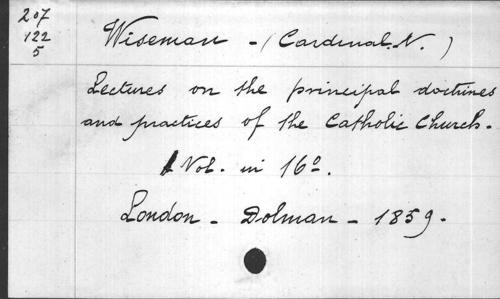 207
122
5
Wiseman - (Cardinal. N. )
Lectures on the principal doctrines
and practices of the Catholic Church.
1 Vol. in 16º.
London - Dolman - 1859.